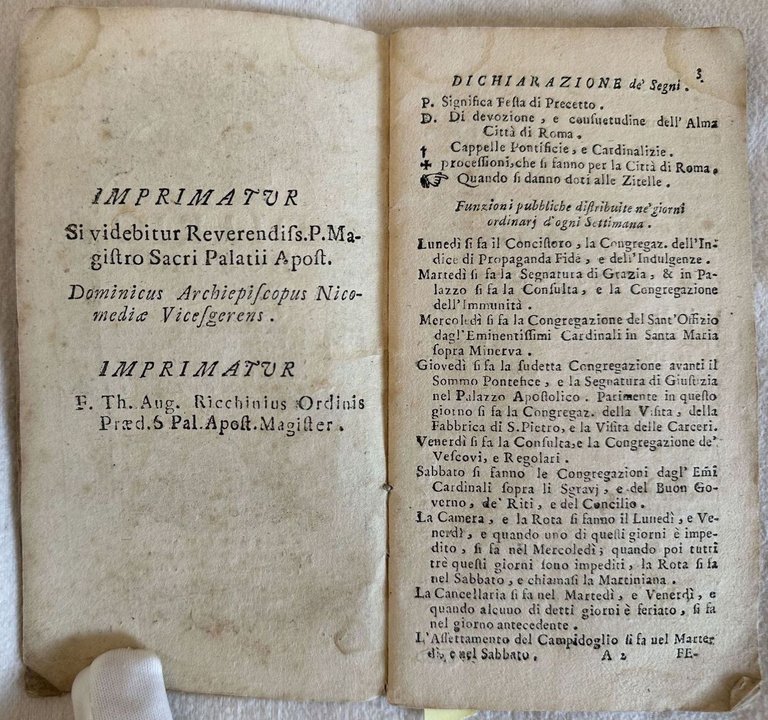 IMPRIMATVR
Si videbitur Reverendiſs.P.Ma-
giſtro Sacri Palatii Apoſt.
Dominicus Archiepiſcopus Nico-
mediæ Viceſgerens.
IMPRIMATVR
F. Th. Aug. Ricchinius Ordinis
Præd.S Pal.Apoſt.Magiſter.
3
DICHIARAZIONE de' Segni.
P. Significa Feſta di Precetto.
D. Di devozione, e conſuetudine dell' Alma
Città di Roma.
† Cappelle Pontificie, e Cardinalizie.
✚ proceſſioni,che ſi fanno per la Città di Roma.
☞ Quando ſi danno doti alle Zitelle.
Funzioni pubbliche diſtribuite ne' giorni
ordinarj d'ogni Settimana.
Lunedì ſi fa il Conciſtoro, la Congregaz. dell'In-
dice di Propaganda Fide, e dell'Indulgenze.
Martedì ſi fa la Segnatura di Grazia, & in Pa-
lazzo ſi fa la Conſulta, e la Congregazione
dell'Immunità.
Mercoledì ſi fa la Congregazione del Sant'Offizio
dagl'Eminentiſſimi Cardinali in Santa Maria
ſopra Minerva.
Giovedì ſi fa la ſudetta Congregazione avanti il
Sommo Pontefice, e la Segnatura di Giuſtizia
nel Palazzo Apoſtolico. Parimente in queſto
giorno ſi fa la Congregaz. della Viſita, della
Fabbrica di S.Pietro, e la Viſita delle Carceri.
Venerdì ſi fa la Conſulta,e la Congregazione de'
Veſcovi, e Regolari.
Sabbato ſi fanno le Congregazioni dagl' Emi
Cardinali ſopra li Sgravj, e del Buon Go-
verno, de' Riti, e del Concilio.
La Camera, e la Rota ſi fanno il Lunedì, e Ve-
nerdì, e quando uno di queſti giorni è impe-
dito, ſi fa nel Mercoledì; quando poi tutti
trè queſti giorni ſono impediti, la Rota ſi fa
nel Sabbato, e chiamaſi la Martiniana.
La Cancellaria ſi fa nel Martedì, e Venerdì, e
quando alcuno di detti giorni è feriato, ſi fa
nel giorno antecedente.
L'Aſſettamento del Campidoglio ſi fa nel Marte
dì, e nel Sabbato. A 2 FE-